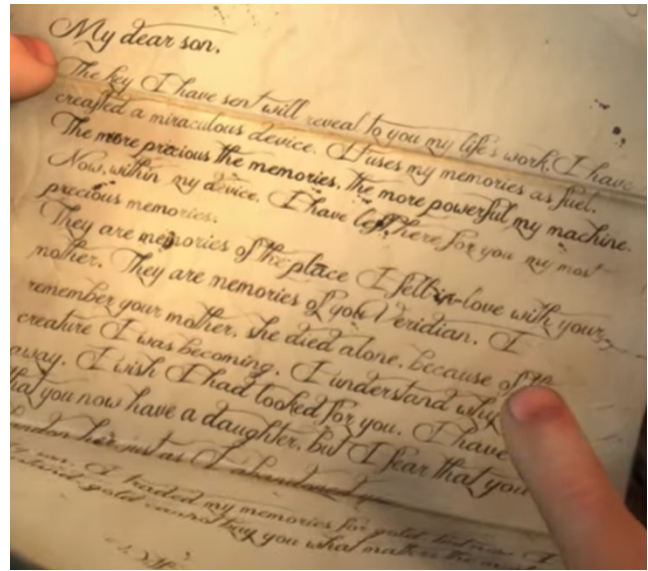 My dear son,
The key I have sent will reveal to you my life's work. I have
created a miraculous device. It uses my memories as fuel.
The more precious the memories, the more powerful my machine.
Now, within my device, I have left here for you my most
precious memories.
They are memories of the place I fell in-love with your
mother. They are memories of you Veridian. I
remember your mother, she died alone, because of the
creature I was becoming. I understand why
away. I wish I had looked for you. I have
that you now have a daughter, but I fear that you
just as I abandoned
I traded my memories for gold, but now I
gold cannot buy you what matters the most